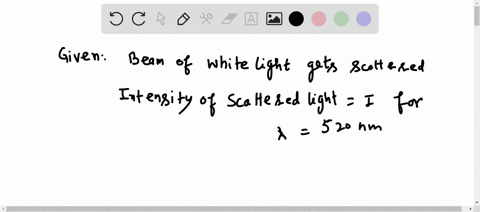 Given:. Beam of white light gets scattered
Intensity of Scattered light = I for
λ = 520 nm